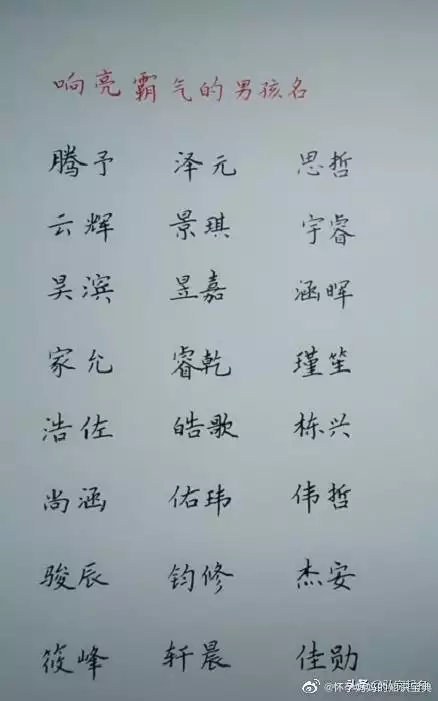 响亮霸气的男孩名
腾予 泽元 思哲
云辉 景琪 宇睿
昊滨 昱嘉 涵晖
家允 睿乾 瑾笙
浩佐 皓歌 栋兴
尚涵 佑玮 伟哲
骏辰 钧修 杰安
筱峰 轩晨 佳勋
头条
@怀孕妈妈的知识宝典